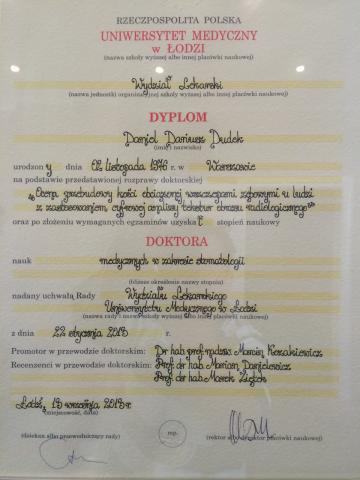 RZECZPOSPOLITA POLSKA
UNIWERSYTET MEDYCZNY
w ŁODZI
(nazwa szkoły wyższej albo innej placówki naukowej)
Wydział Lekarski
(nazwa jednostki organizacyjnej szkoły wyższej albo innej placówki naukowej)
DYPLOM
Daniel Dariusz Dudek
(imię i nazwisko)
urodzony dnia 02 listopada 1976 r. w Warszawie
na podstawie przedstawionej rozprawy doktorskiej
"Ocena przebudowy kości obciążonej wszczepami zębowymi u ludzi
z zastosowaniem cyfrowej analizy tekstur obrazu radiologicznego"
oraz po złożeniu wymaganych egzaminów uzyskał stopień naukowy
DOKTORA
nauk medycznych w zakresie stomatologii
(bliższe określenie nazwy stopnia)
nadany uchwałą Rady Wydziału Lekarskiego
Uniwersytetu Medycznego w Łodzi
(nazwa rady i nazwa szkoły wyższej albo innej placówki naukowej)
z dnia 22 stycznia 2013 r.
Promotor w przewodzie doktorskim: Dr hab. prof. nadzw. Marcin Kozakiewicz
Recenzenci w przewodzie doktorskim: Prof. dr hab. Marian Danilewicz
Prof. dr hab. Marek Ziętek
Łódź, 19 września 2013 r.
(miejscowość, data)
mp.
(dziekan albo przewodniczący rady)
(rektor albo dyrektor placówki naukowej)